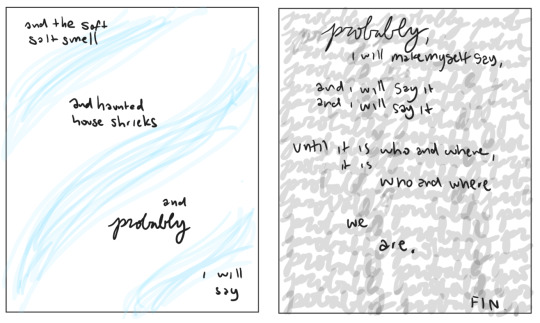 and the soft
salt smell
and haunted
house shrieks
and
probably
i will
say
probably,
i will make myself say,
and i will say it
and i will say it
until it is who and where,
it is
who and where
we
are.
FIN